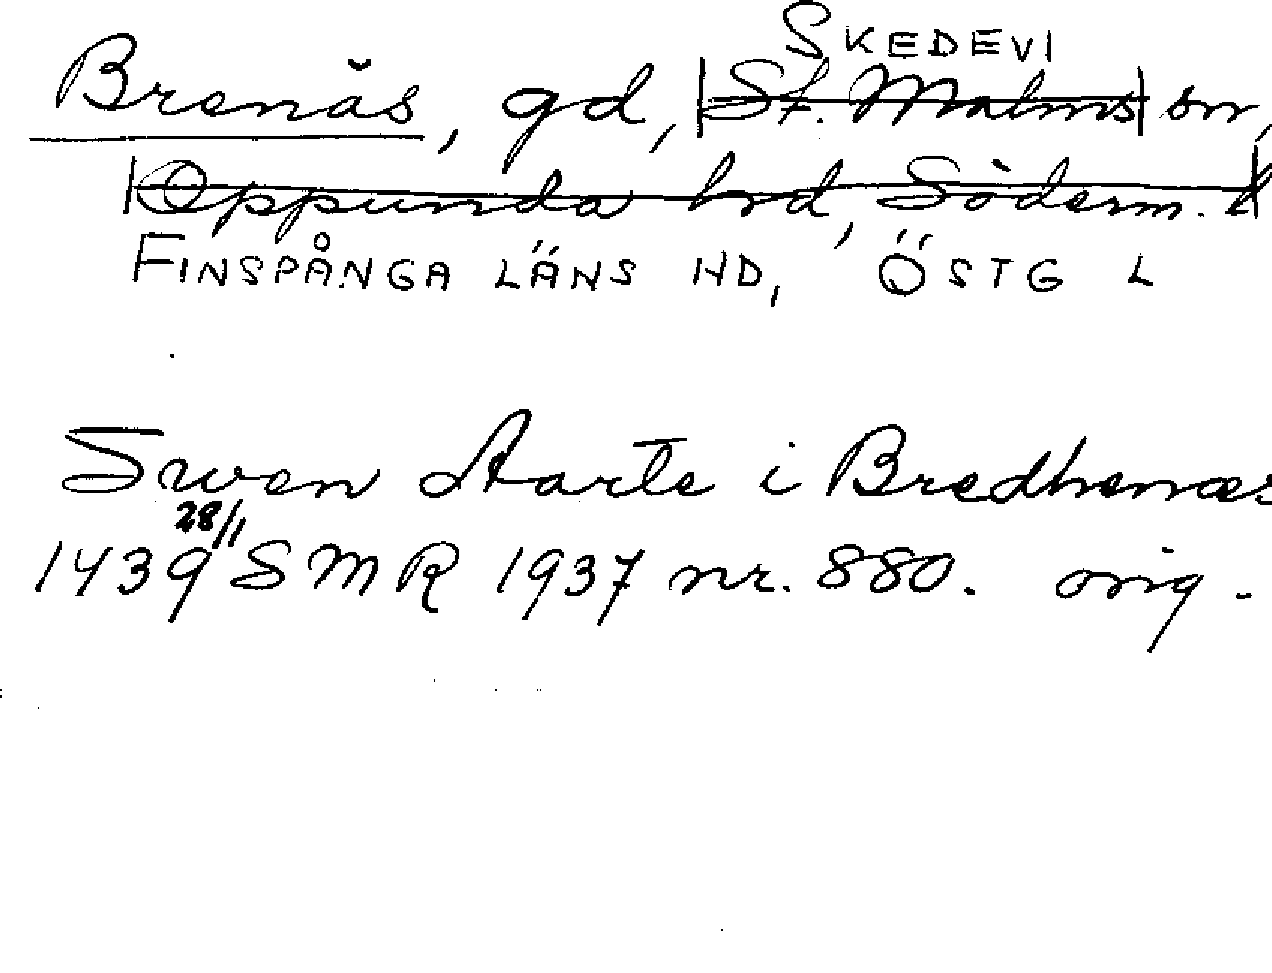 SKEDEVI
Brenäs, gd, St. Malms sn,
Oppunda hd, Söderm. l
FINSPÅNGA LÄNS HD, ÖSTG L
Swen Starte i Bredhenæs
28/1
1439 SMR 1937 nr. 880. orig.